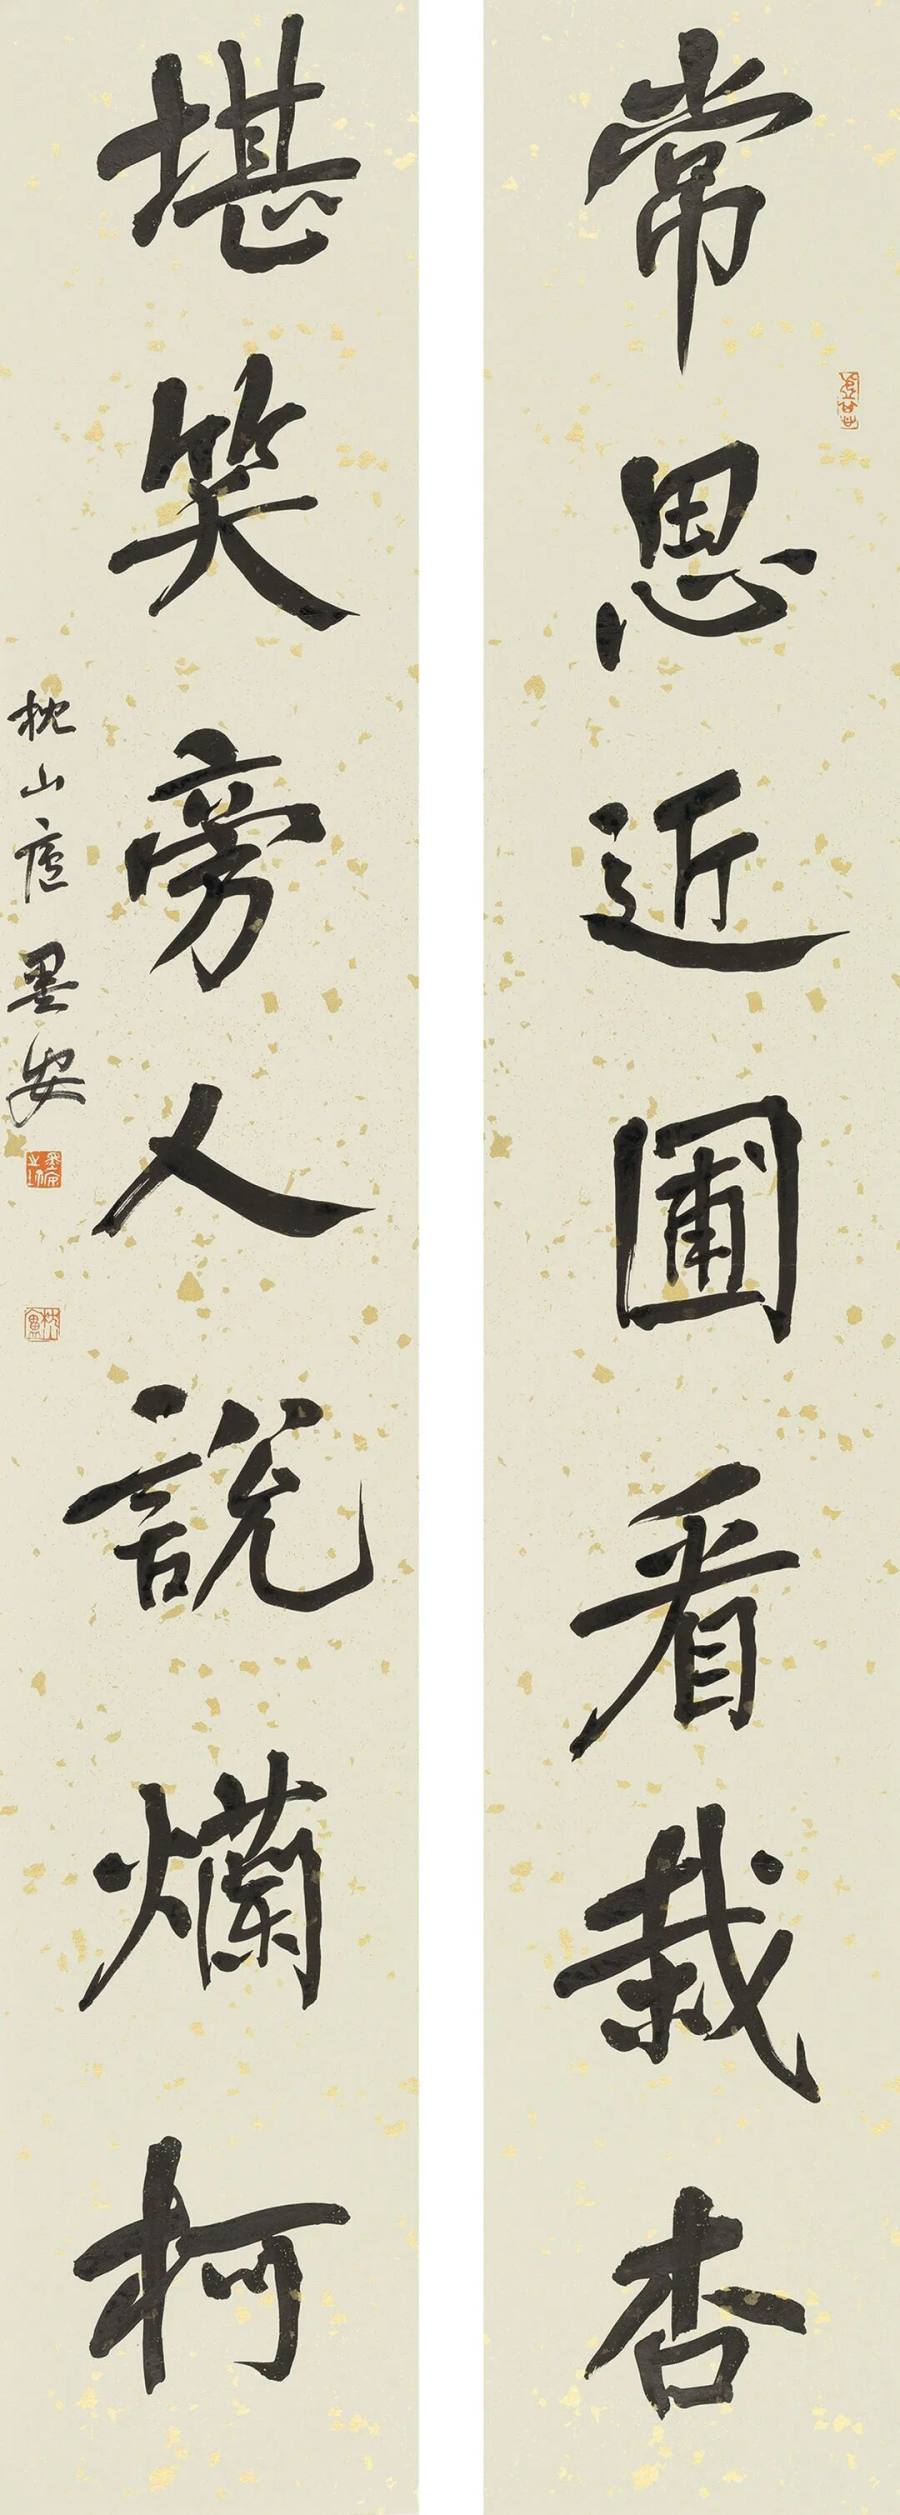 常思近圃看栽杏
堪笑旁人說爛柯
枕山廬墨安